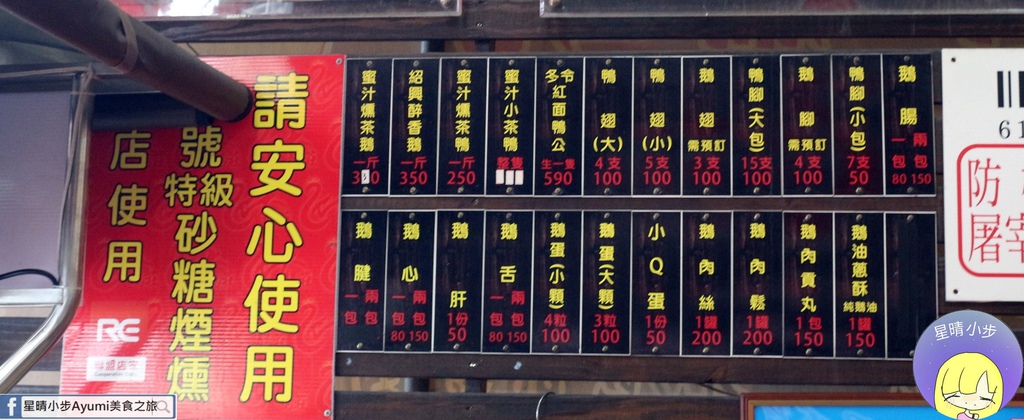 請安心使用
號特級砂糖煙燻
店使用
RE
蜜汁燻茶鵝 一斤 3 0
紹興醉香鵝 一斤 350
蜜汁燻茶鴨 一斤 250
蜜汁小茶鴨 整隻
冬令紅面鴨公 生一隻 590
鴨翅(大) 4支 100
鴨翅(小) 5支 100
鵝翅 需預訂 3支 100
鴨腳(大包) 15支 100
鵝腳 需預訂 4支 100
鴨腳(小包) 7支 50
鵝腸 一包 80 兩包 150
鵝腱 一包 兩包
鵝心 一包 80 兩包 150
鵝肝 1份 50
鵝舌 一包 80 兩包 150
鵝蛋(小顆) 4粒 100
鵝蛋(大顆) 3粒 100
小Q蛋 1份 50
鵝肉絲 1罐 200
鵝肉鬆 1罐 200
鵝肉貢丸 1包 150
鵝油蔥酥 純鵝油 1罐 150
61
防
屠宰
星晴小步
星晴小步Ayumi美食之旅